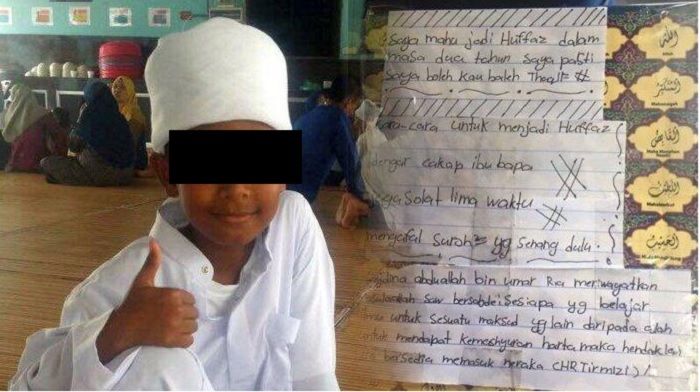 Saya mahu jadi Huffaz dalam
masa dua tahun saya pasti
saya boleh kau boleh Thaqif #
cara-cara untuk menjadi Huffaz
dengar cakap ibu bapa
jaga Solat lima waktu
mengafal Suroh² yg senang dulu.
abduallah bin umar Ra meriwayatkan
saw bersabde: Sesiapa yg belajar
untuk Sesuatu maksud yg lain diripada allah
untuk mendapat kemeshyuran harta maka hendak lai
bersedia memasuk neraka (HR Tirmizi) !